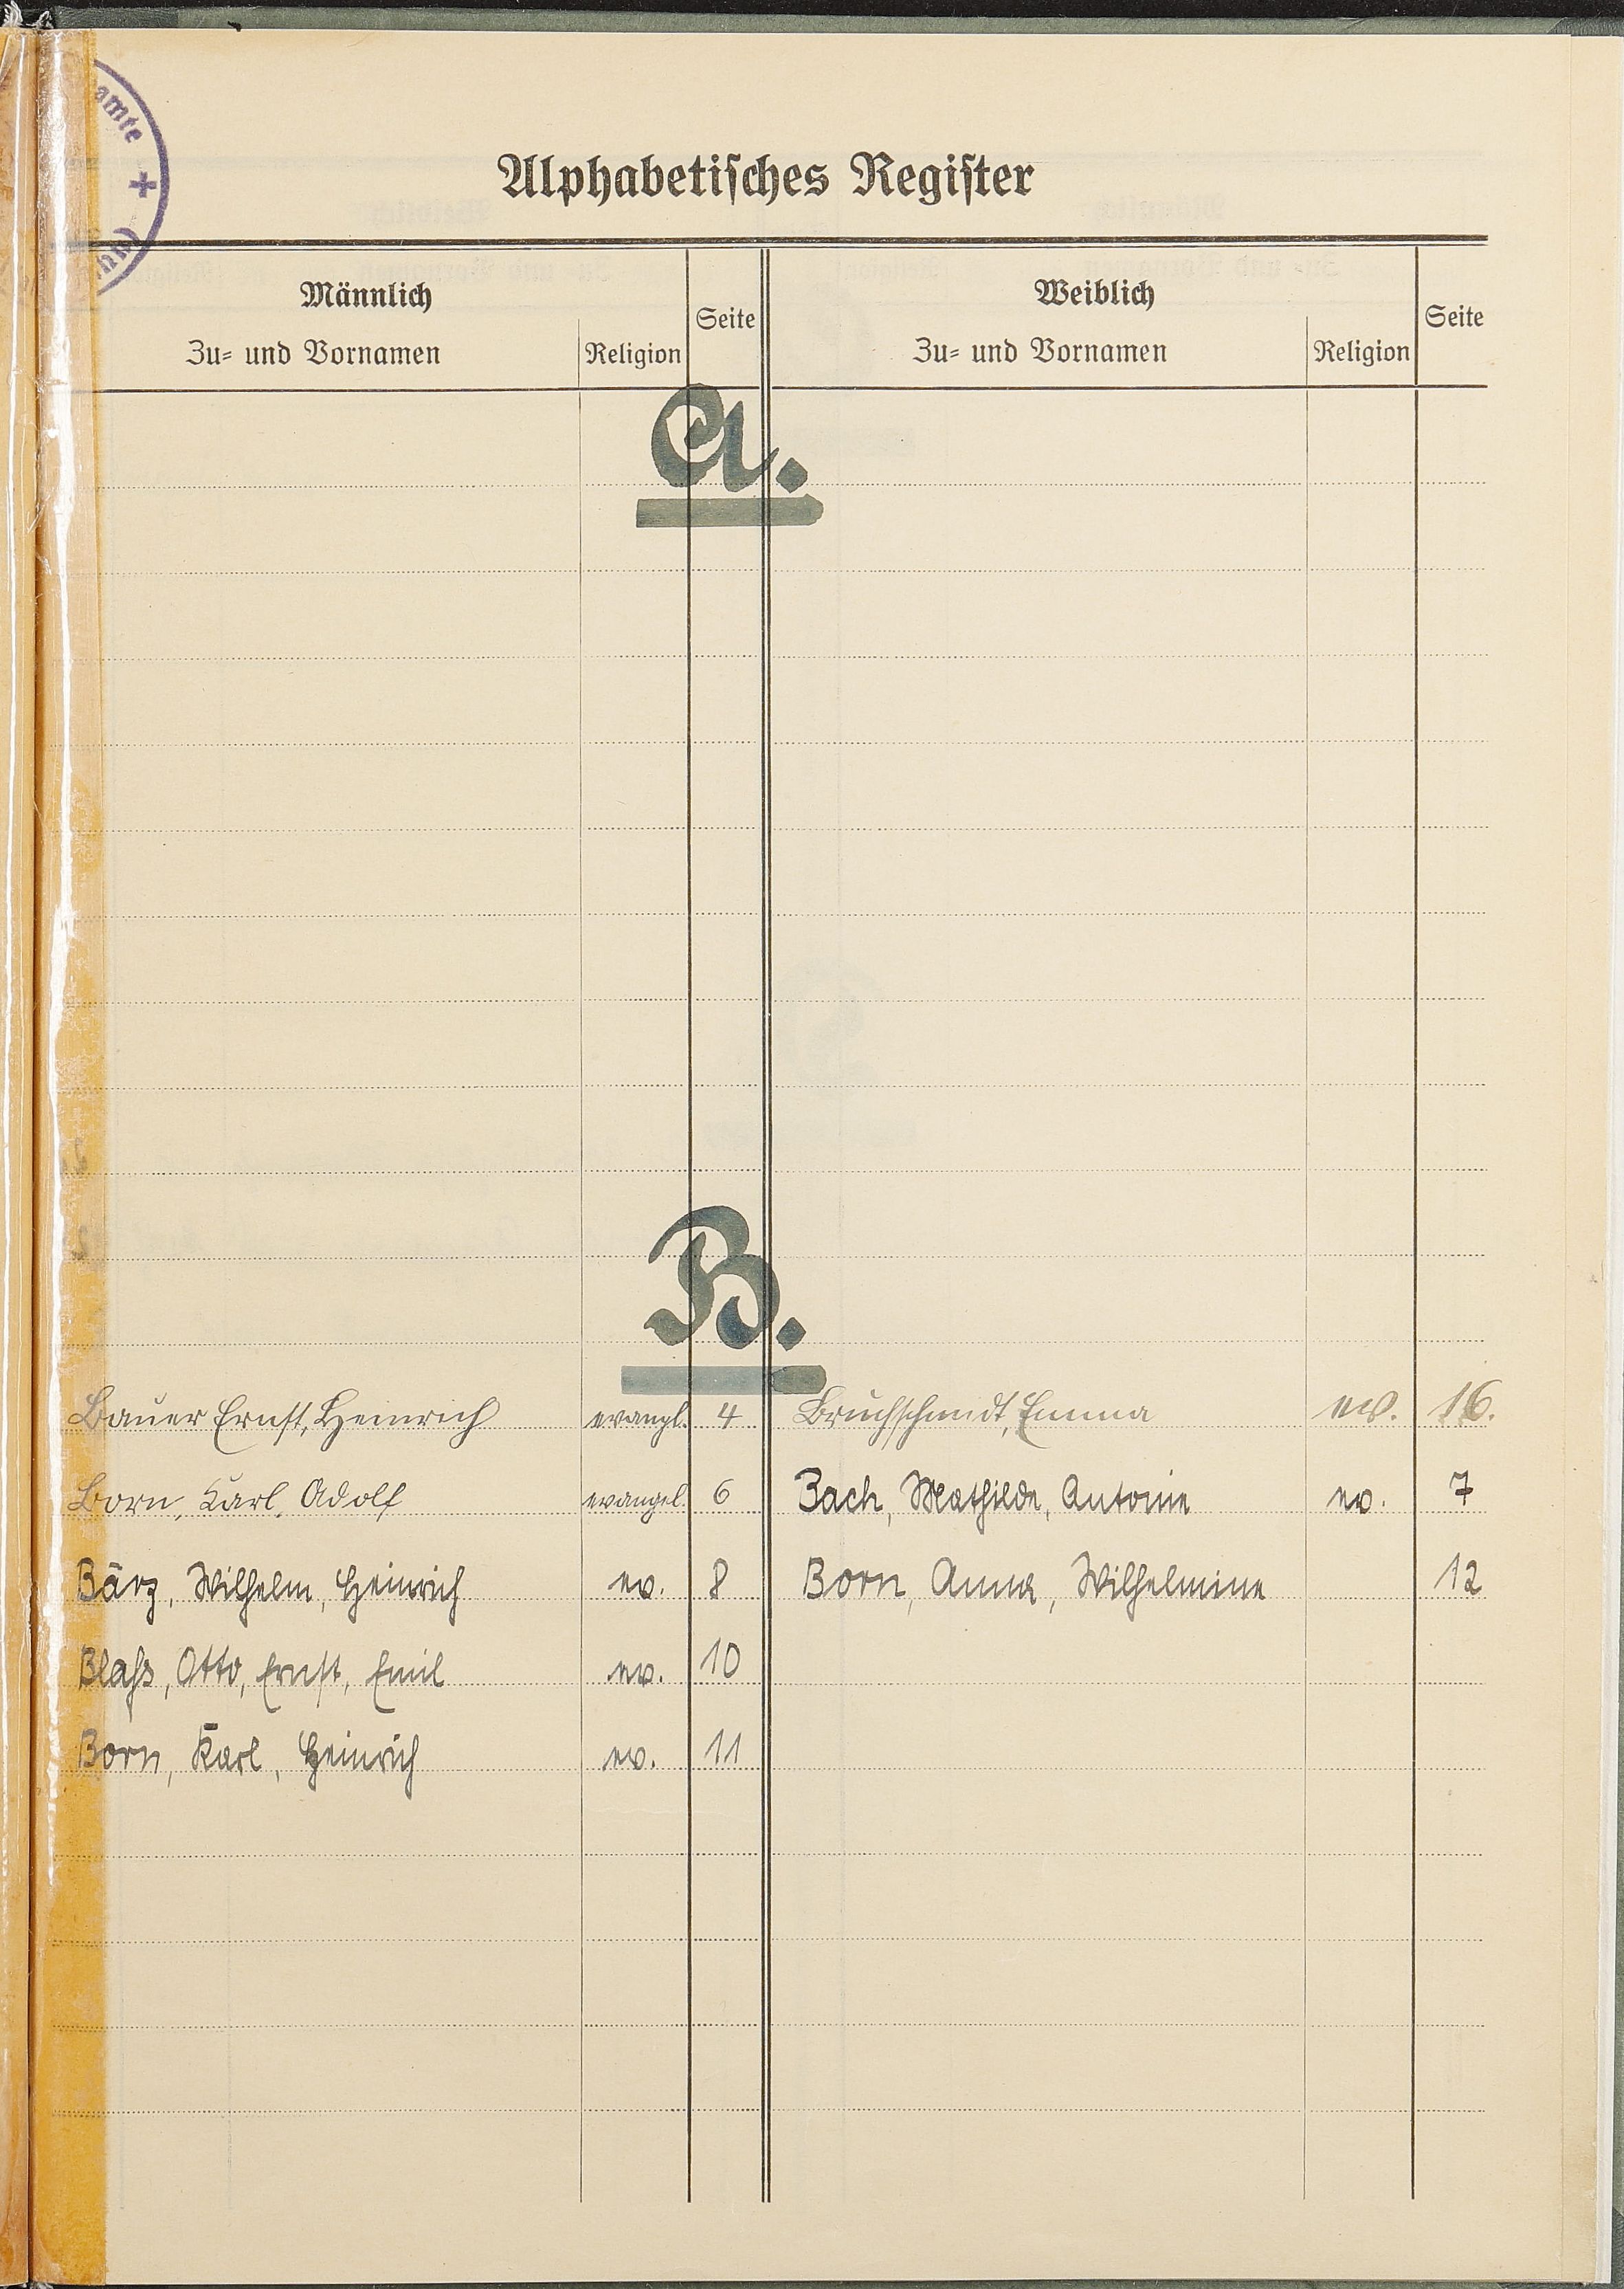 amte
Alphabetisches Register
Männlich Seite Weiblich Seite
Zu- und Vornamen Religion Zu- und Vornamen Religion
A.
B.
Bauer Ernst, Heinrich evangl. 4 Bruchschmidt, Emma ev. 16.
Born, Karl, Adolf evangel. 6 Bach, Mathilde, Antonie ev. 7
Bärz, Wilhelm, Heinrich ev. 8 Born, Anna, Wilhelmine 12
Blaß, Otto, Ernst, Emil ev. 10
Born, Karl, Heinrich ev. 11